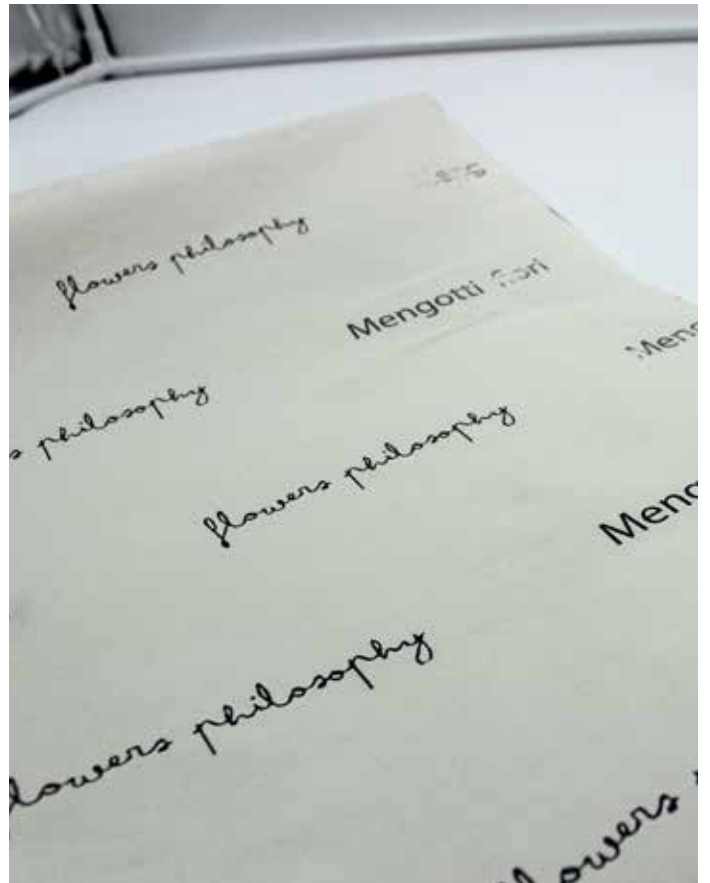 flowers philosophy
Mengotti fiori
Meng
s philosophy
flowers philosophy
Meng
lowers philosophy
lowers